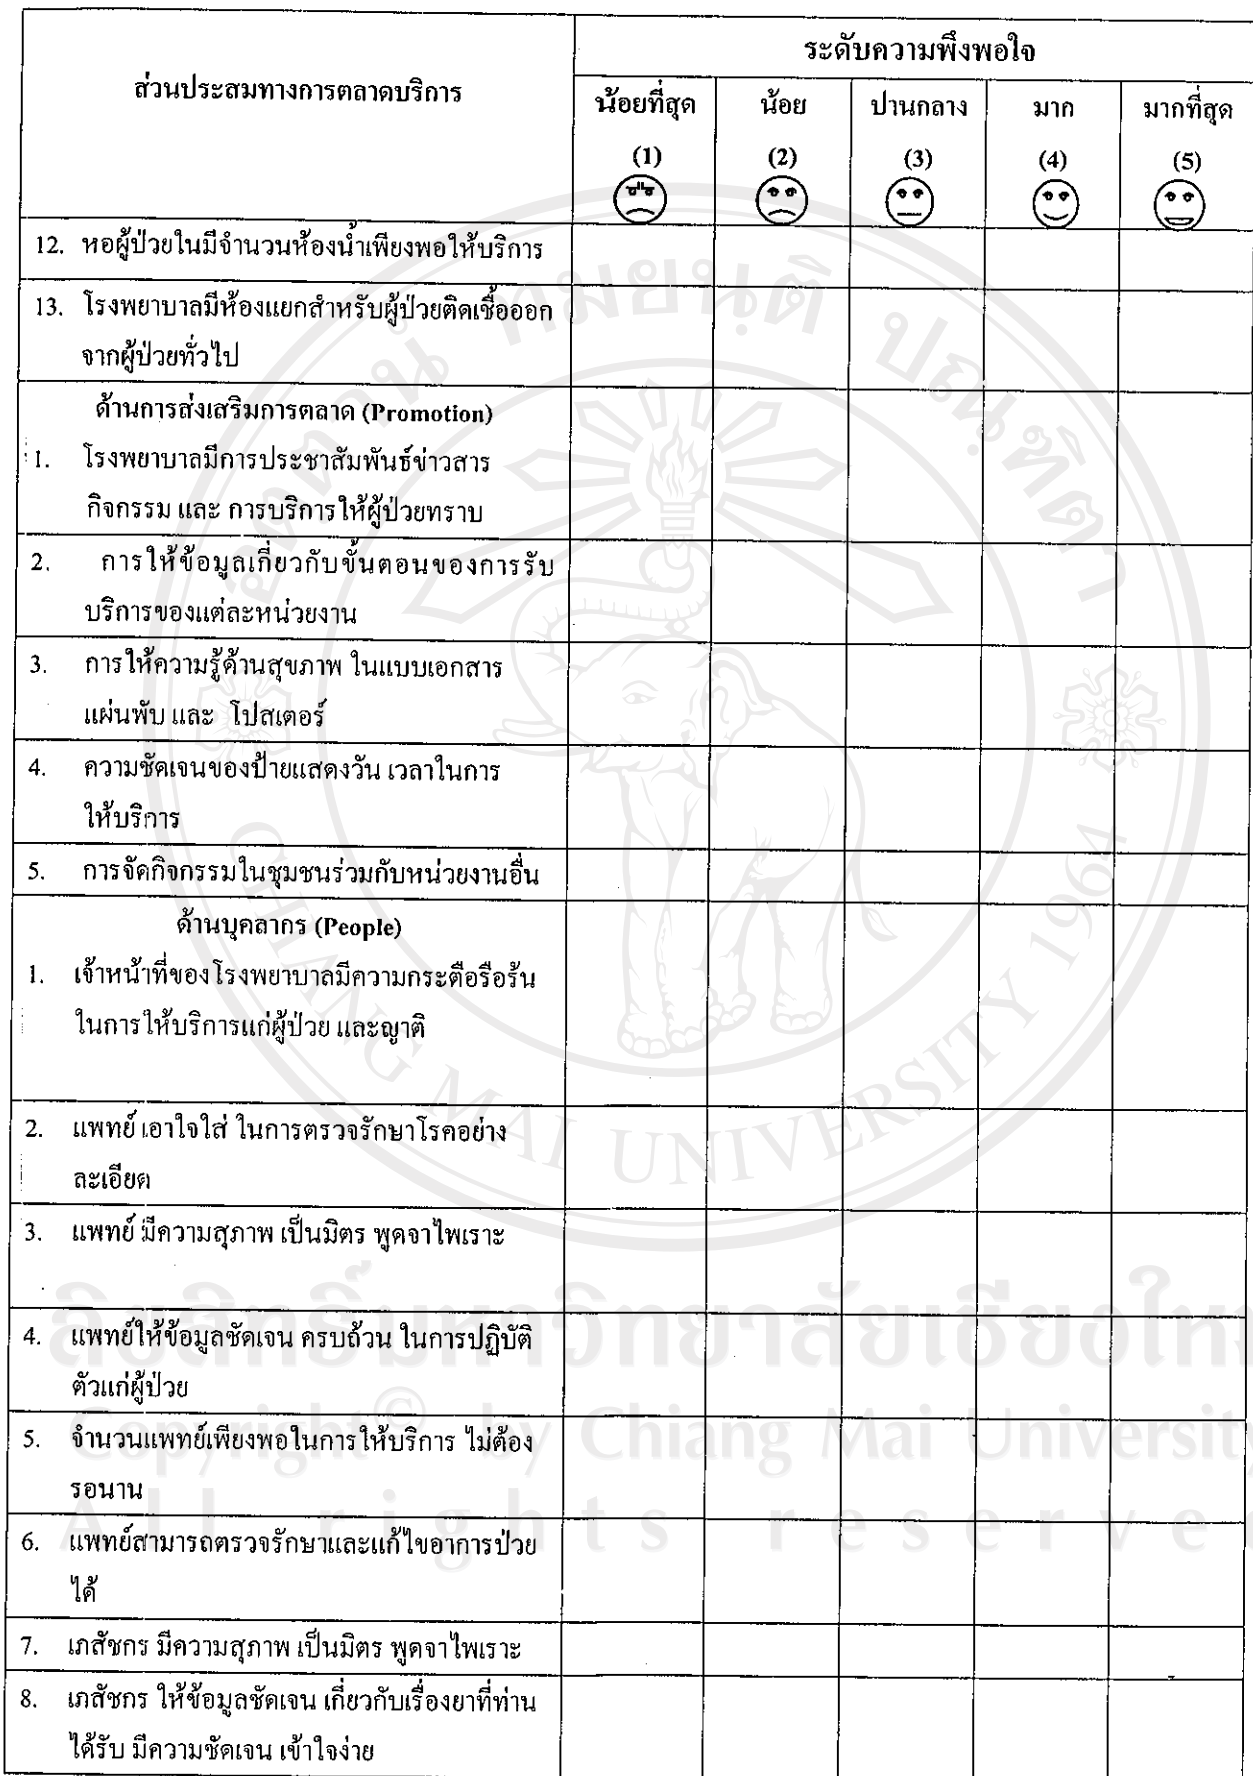 ส่วนประสมทางการตลาดบริการ
ระดับความพึงพอใจ
น้อยที่สุด น้อย ปานกลาง มาก มากที่สุด
(1) (2) (3) (4) (5)
12. หอผู้ป่วยในมีจำนวนห้องน้ำเพียงพอให้บริการ
13. โรงพยาบาลมีห้องแยกสำหรับผู้ป่วยติดเชื้อออก
จากผู้ป่วยทั่วไป
ด้านการส่งเสริมการตลาด (Promotion)
1. โรงพยาบาลมีการประชาสัมพันธ์ข่าวสาร
กิจกรรม และ การบริการให้ผู้ป่วยทราบ
2. การให้ข้อมูลเกี่ยวกับขั้นตอนของการรับ
บริการของแต่ละหน่วยงาน
3. การให้ความรู้ด้านสุขภาพ ในแบบเอกสาร
แผ่นพับ และ โปสเตอร์
4. ความชัดเจนของป้ายแสดงวัน เวลาในการ
ให้บริการ
5. การจัดกิจกรรมในชุมชนร่วมกับหน่วยงานอื่น
ด้านบุคลากร (People)
1. เจ้าหน้าที่ของโรงพยาบาลมีความกระตือรือร้น
ในการให้บริการแก่ผู้ป่วย และญาติ
2. แพทย์ เอาใจใส่ ในการตรวจรักษาโรคอย่าง
ละเอียด
3. แพทย์ มีความสุภาพ เป็นมิตร พูดจาไพเราะ
4. แพทย์ให้ข้อมูลชัดเจน ครบถ้วน ในการปฏิบัติ
ตัวแก่ผู้ป่วย
5. จำนวนแพทย์เพียงพอในการให้บริการ ไม่ต้อง
รอนาน
6. แพทย์สามารถตรวจรักษาและแก้ไขอาการป่วย
ได้
7. เภสัชกร มีความสุภาพ เป็นมิตร พูดจาไพเราะ
8. เภสัชกร ให้ข้อมูลชัดเจน เกี่ยวกับเรื่องยาที่ท่าน
ได้รับ มีความชัดเจน เข้าใจง่าย
CHIANG MAI UNIVERSITY 1964
Copyright© by Chiang Mai University
All rights reserve